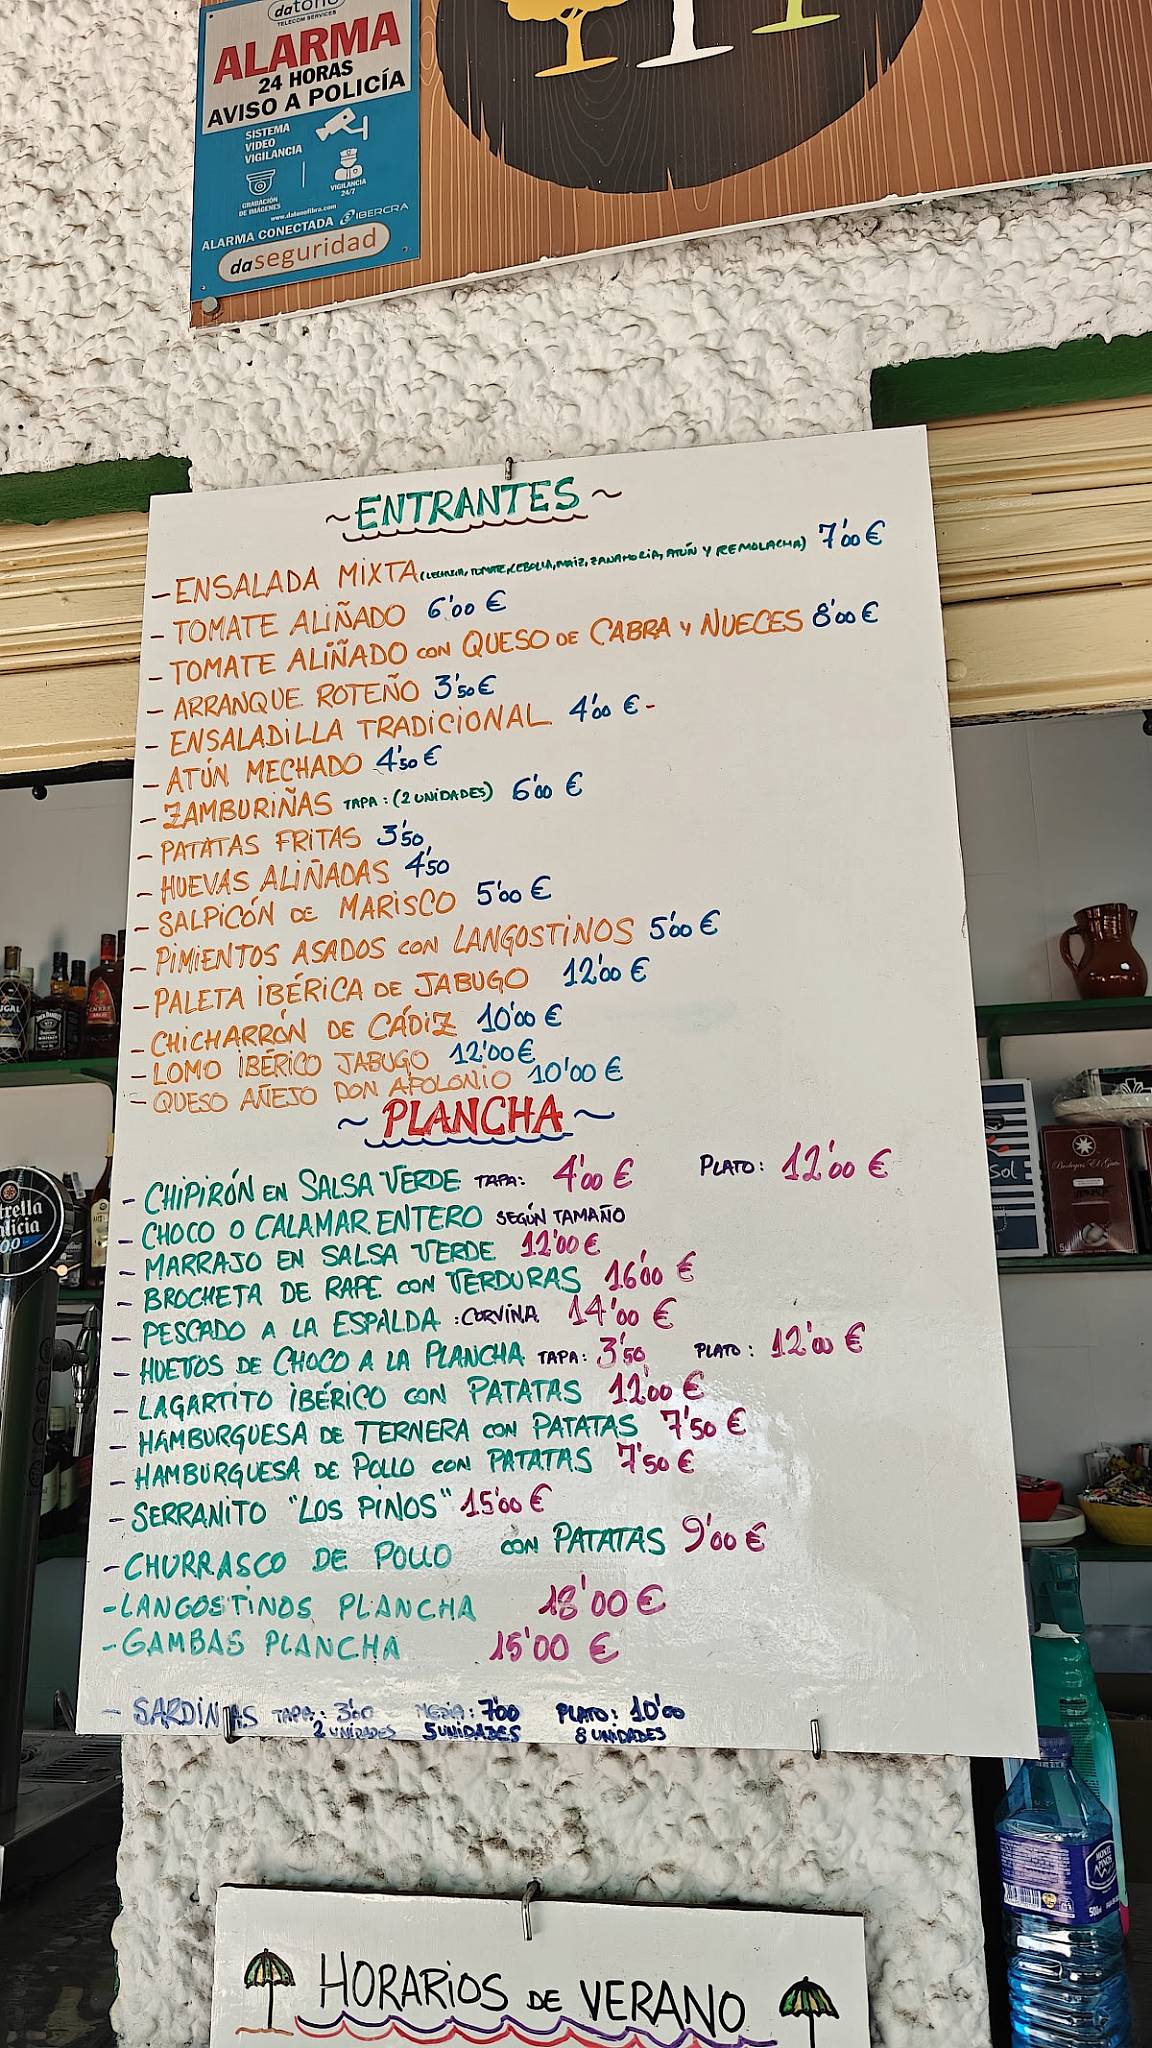 datono
TELECOM SERVICES
ALARMA
24 HORAS
AVISO A POLICÍA
SISTEMA
VIDEO
VIGILANCIA
GRABACIÓN
DE IMÁGENES
VIGILANCIA
24/7
www.datonofibra.com
ALARMA CONECTADA IBERCRA
daseguridad
~ENTRANTES~
- ENSALADA MIXTA (LECHUGA, TOMATE, CEBOLLA, MAIZ, ZANAHORIA, ATÚN Y REMOLACHA) 7'00 €
- TOMATE ALIÑADO 6'00 €
- TOMATE ALIÑADO CON QUESO DE CABRA Y NUECES 8'00 €
- ARRANQUE ROTEÑO 3'50 €
- ENSALADILLA TRADICIONAL 4'00 € -
- ATÚN MECHADO 4'50 €
- ZAMBURIÑAS TAPA: (2 UNIDADES) 6'00 €
- PATATAS FRITAS 3'50
- HUEVAS ALIÑADAS 4'50
- SALPICÓN DE MARISCO 5'00 €
- PIMIENTOS ASADOS CON LANGOSTINOS 5'00 €
- PALETA IBÉRICA DE JABUGO 12'00 €
- CHICHARRÓN DE CÁDIZ 10'00 €
- LOMO IBÉRICO JABUGO 12'00 €
- QUESO AÑEJO DON APOLONIO 10'00 €
~ PLANCHA ~
- CHIPIRÓN EN SALSA VERDE TAPA: 4'00 € PLATO: 12'00 €
- CHOCO O CALAMAR ENTERO SEGÚN TAMAÑO
- MARRAJO EN SALSA VERDE 12'00 €
- BROCHETA DE RAPE CON VERDURAS 16'00 €
- PESCADO A LA ESPALDA: CORVINA 14'00 €
- HUEVOS DE CHOCO A LA PLANCHA TAPA: 3'50 PLATO: 12'00 €
- LAGARTITO IBÉRICO CON PATATAS 12'00 €
- HAMBURGUESA DE TERNERA CON PATATAS 7'50 €
- HAMBURGUESA DE POLLO CON PATATAS 7'50 €
- SERRANITO "LOS PINOS" 15'00 €
- CHURRASCO DE POLLO CON PATATAS 9'00 €
- LANGOSTINOS PLANCHA 18'00 €
- GAMBAS PLANCHA 15'00 €
- SARDINAS TAPA: 3'00 - MEDIA: 7'00 PLATO: 10'00
2 UNIDADES 5 UNIDADES 8 UNIDADES
HORARIOS DE VERANO